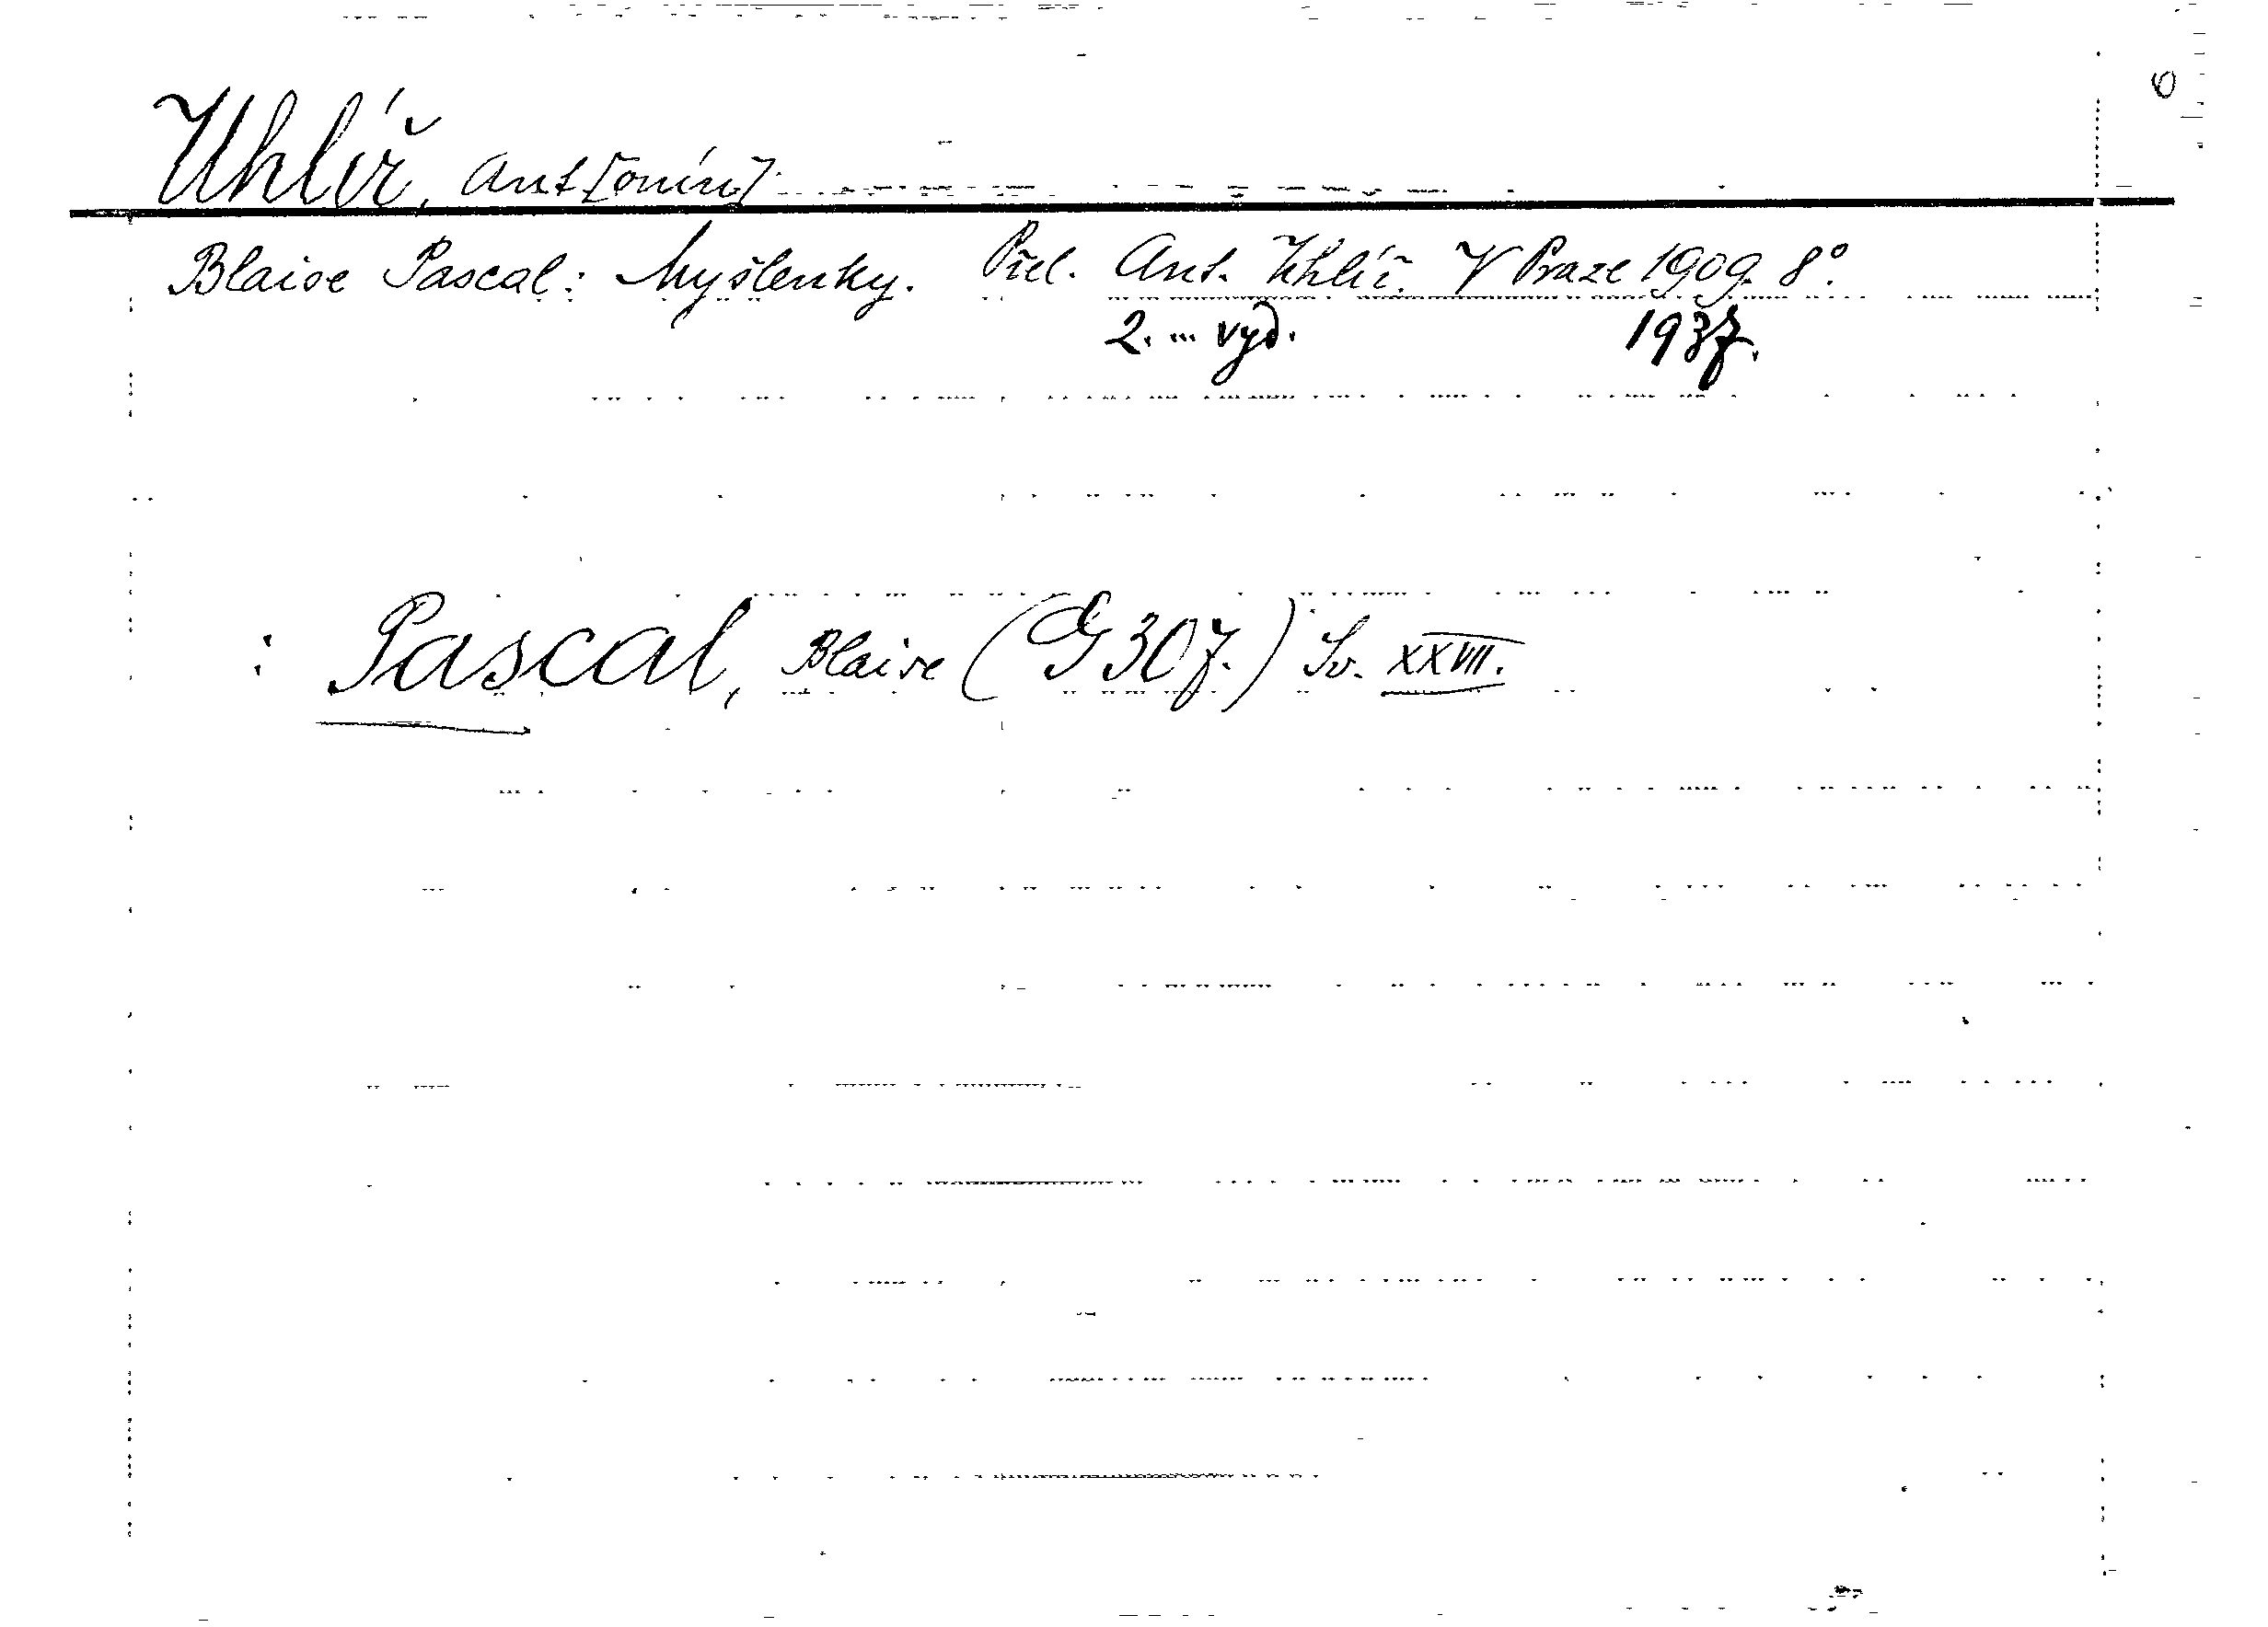 Uhlíř, Ant[onín]
Blaise Pascal: Myšlenky. Přel. Ant. Uhlíř. V Praze 1909. 8°.
2. ... vyd. 1937.
: Pascal, Blaise (G 307.) Sv. XXVII.